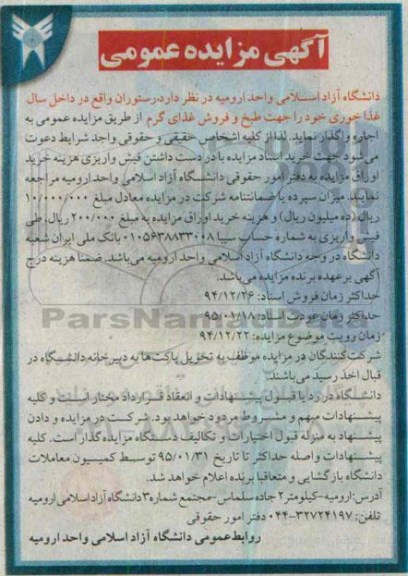 آگهی مزایده عمومی
دانشگاه آزاد اسلامی واحد ارومیه در نظر دارد رستوران واقع در داخل سال
غذا خوری خود را جهت طبخ و فروش غذای گرم از طریق مزایده عمومی به
اجاره واگذار نماید. لذا از کلیه اشخاص حقیقی و حقوقی واجد شرایط دعوت
می شود جهت خرید اسناد مزایده با در دست داشتن فیش واریزی هزینه خرید
اوراق مزایده به دفتر امور حقوقی دانشگاه آزاد اسلامی واحد ارومیه مراجعه
نمایند. میزان سپرده یا ضمانتنامه شرکت در مزایده معادل مبلغ ۱۰/۰۰۰/۰۰۰
ریال (ده میلیون ریال) و هزینه خرید اوراق مزایده به مبلغ ۲۰۰/۰۰۰ ریال، طی
فیش واریزی به شماره حساب سیبا ۰۱۰۵۶۳۸۸۳۳۰۰۸ بانک ملی ایران شعبه
دانشگاه در وجه دانشگاه آزاد اسلامی واحد ارومیه می باشد. ضمنا هزینه درج
آگهی بر عهده برنده مزایده می باشد.
حداکثر زمان فروش اسناد: ۹۴/۱۲/۲۶
حداکثر زمان عودت اسناد: ۹۵/۰۱/۱۸
زمان رویت موضوع مزایده: ۹۴/۱۲/۲۲
ParsNamadData
شرکت کنندگان در مزایده موظف به تحویل پاکت ها به دبیرخانه دانشگاه در
قبال اخذ رسید می باشند.
دانشگاه در رد یا قبول پیشنهادات و انعقاد قرارداد مختار است و کلیه
پیشنهادات مبهم و مشروط مردود خواهد بود. شرکت در مزایده و دادن
پیشنهاد به منزله قبول اختیارات و تکالیف دستگاه مزایده گذار است. کلیه
پیشنهادات واصله حداکثر تا تاریخ ۹۵/۰۱/۳۱ توسط کمیسیون معاملات
دانشگاه بازگشایی و متعاقبا برنده اعلام خواهد شد.
آدرس: ارومیه-کیلومتر ۲ جاده سلماس-مجتمع شماره ۳ دانشگاه آزاد اسلامی ارومیه
تلفن: ۳۲۷۲۴۱۹۷-۰۴۴ دفتر امور حقوقی
روابط عمومی دانشگاه آزاد اسلامی واحد ارومیه